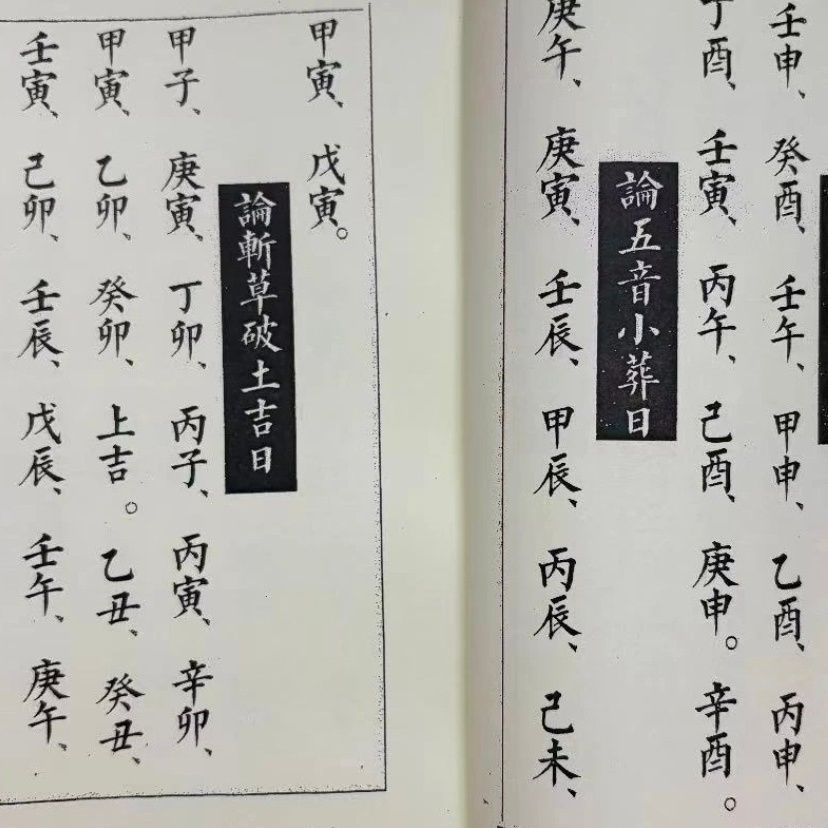 壬申、癸酉、壬午、甲申、乙酉、丙申、
丁酉、壬寅、丙午、己酉、庚申。辛酉。
論五音小葬日
庚午、庚寅、壬辰、甲辰、丙辰、己未、
甲寅、戊寅。
論斬草破土吉日
甲子、庚寅、丁卯、丙子、丙寅、辛卯、
甲寅、乙卯、癸卯、上吉。乙丑、癸丑、
壬寅、己卯、壬辰、戊辰、壬午、庚午、